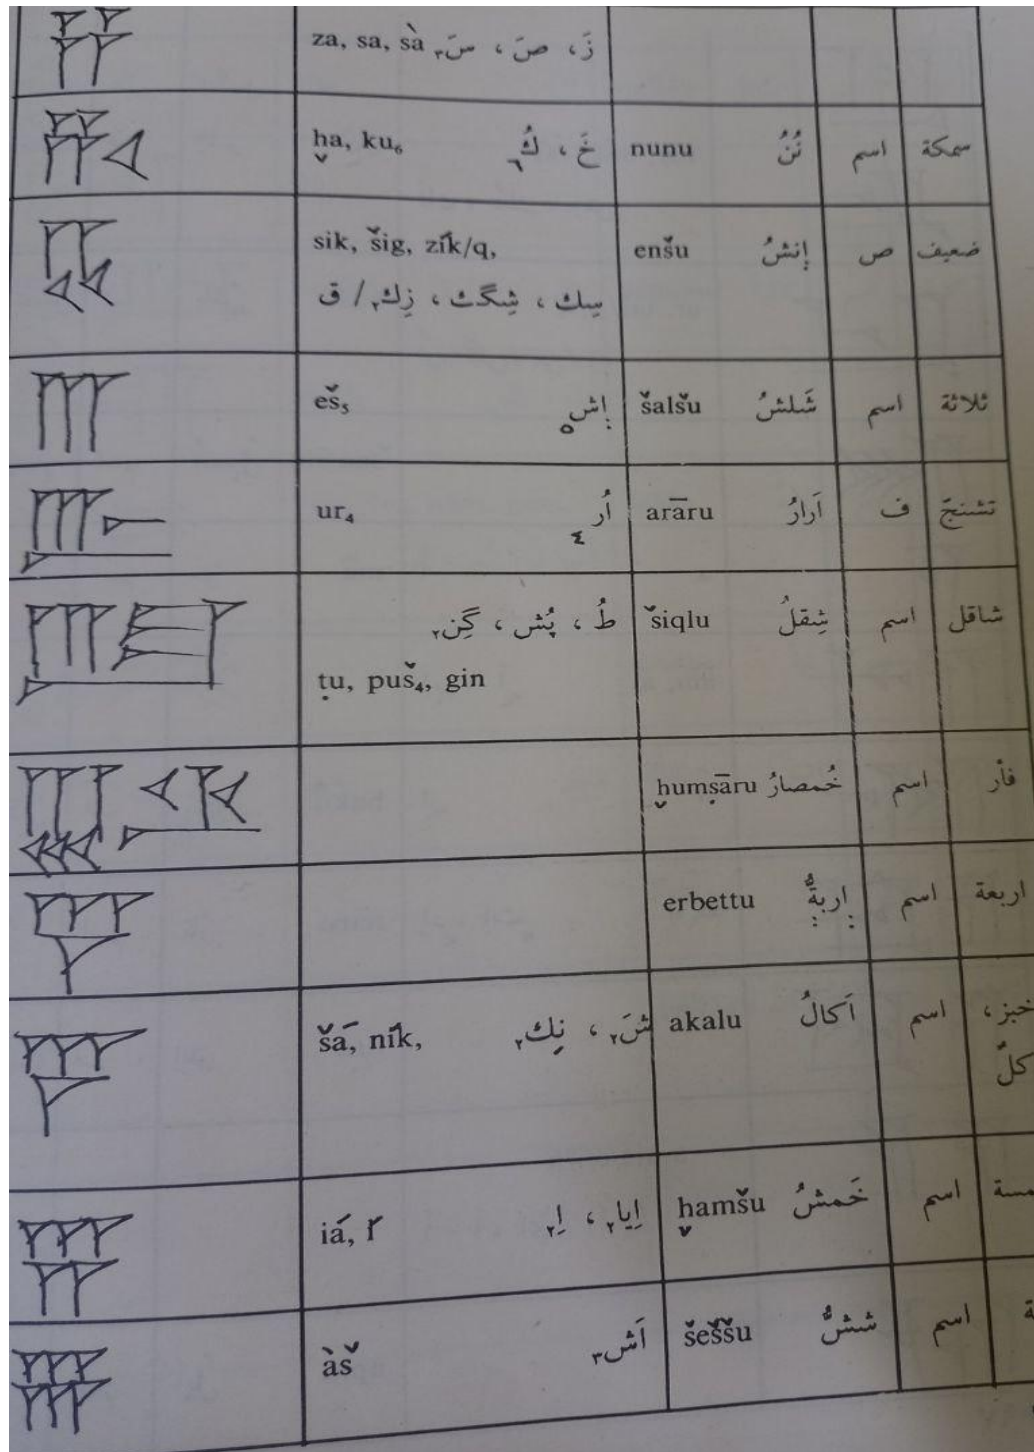 za, sa, sà زَ، صَ، سَ٣
ḫa, ku₆ خَ، كُ٦ nunu نُنُ اسم سمكة
sik, šig, zík/q, enšu إنشُ ص ضعيف
سِك، شِگ، زِك٢/ ق
eš₅ إش٥ šalšu شَلشُ اسم ثلاثة
ur₄ اُر٤ arāru اَرارُ ف تشنجّ
طُ، پُش، گِن٢ šiqlu شِقلُ اسم شاقل
ṭu, puš₄, gin
ḫumṣāru خُمصارُ اسم فأر
erbettu اِربةٌ اسم اربعة
šá, ník, شَ٢، نِك٢ akalu اَكالُ اسم خبز،
iá, í اِيا٢، اِ٢ ḫamšu خَمشُ اسم
àš اَش٣ šeššu ششُّ اسم